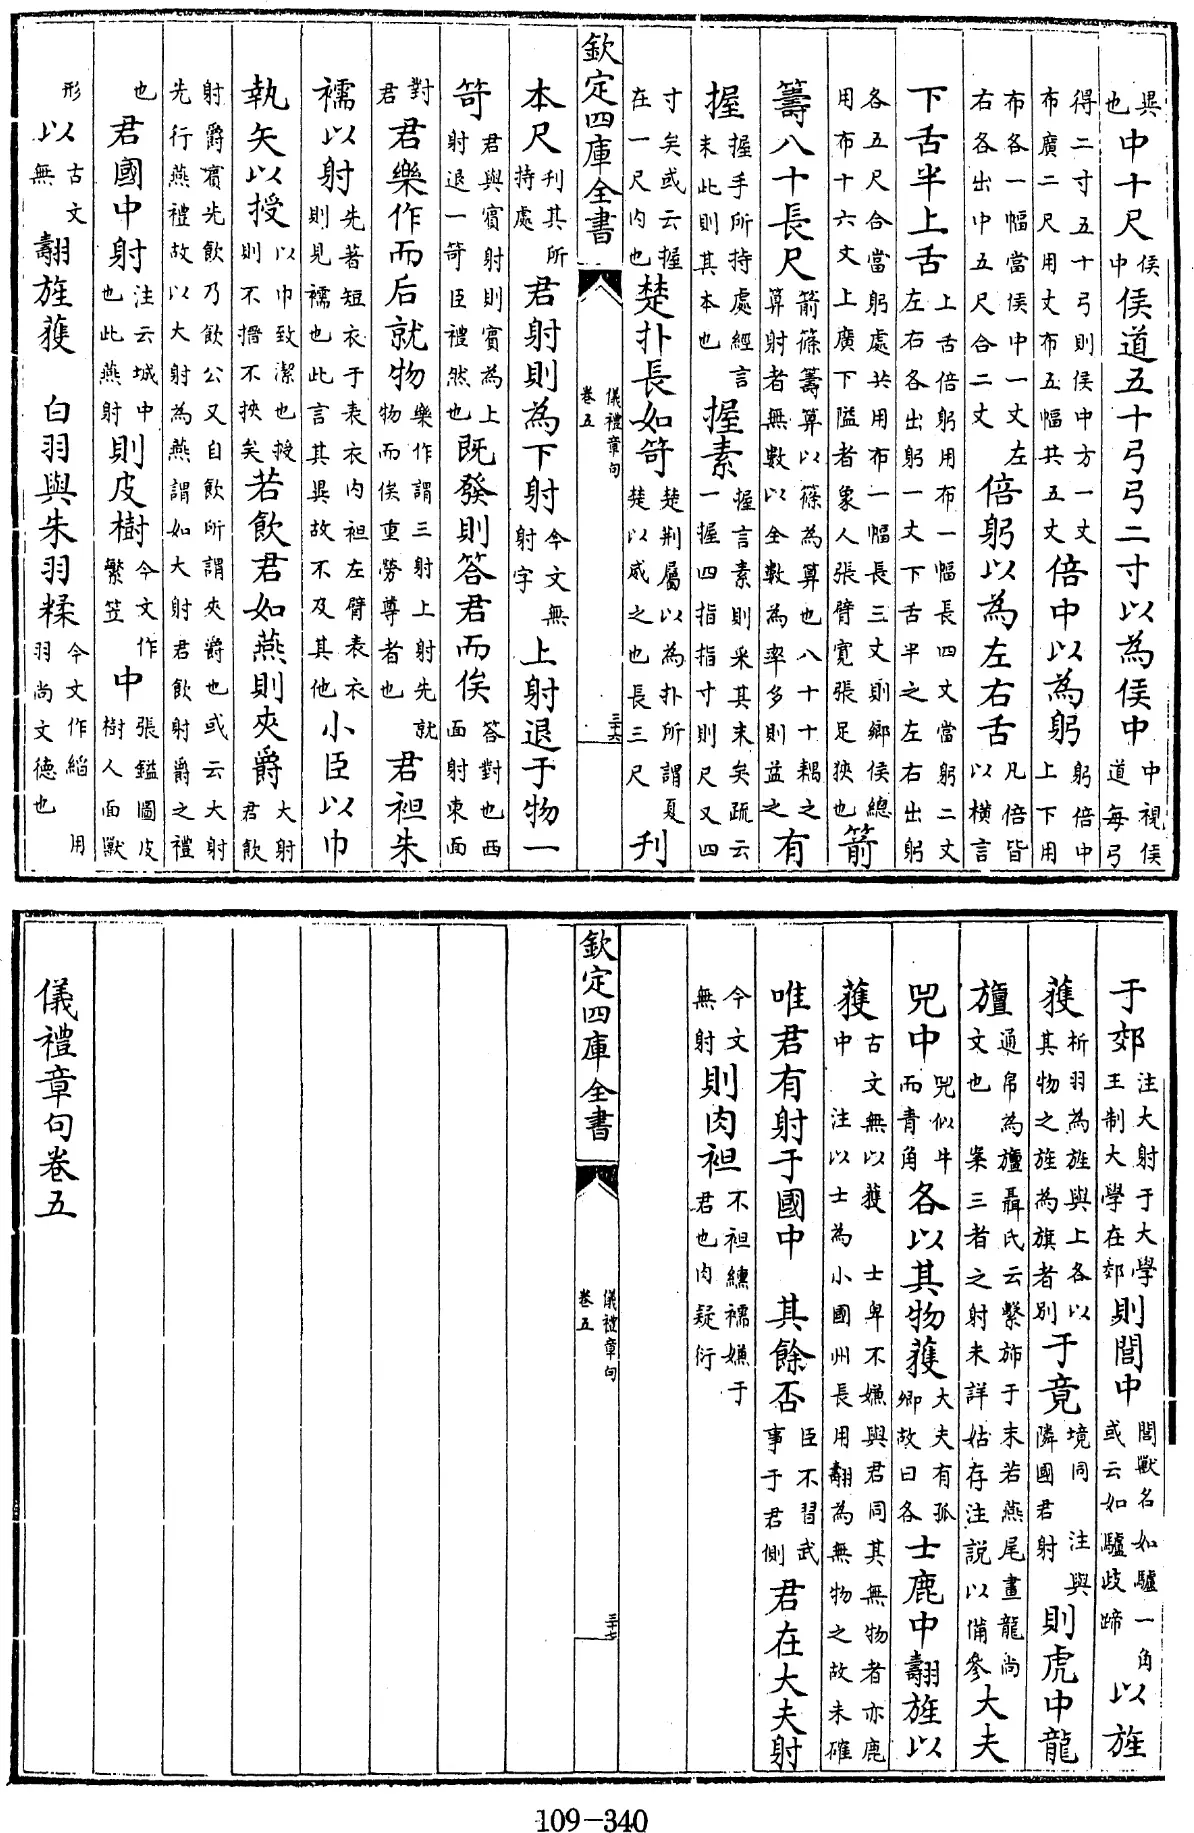 異也中十尺侯中侯道五十弓弓二寸以為侯中中視侯道每弓
得二寸五十弓則侯中方一丈布廣二尺用丈布五幅共五丈倍中以為躬躬倍中上下用
布各一幅當侯中一丈左右各出中五尺合二丈倍躬以為左右舌凡倍皆以橫言
下舌半上舌上舌倍躬用布一幅長四丈當躬二丈左右各出躬一丈下舌半之左右出躬
各五尺合當躬處共用布一幅長三丈則鄉侯總用布十六丈上廣下隘者象人張臂寬張足狹也箭
籌八十長尺箭篠籌算以篠為算也八十十耦之算射者無數以全數為率多則益之有
握握手所持處經言末此則其本也握素握言素則采其末矣疏云一握四指指寸則尺又四
寸矣或云握在一尺內也楚扑長如笴楚荆屬以為扑所謂夏楚以威之也長三尺刊
欽定四庫全書 儀禮章句 卷五 三十六
本尺刊其所持處君射則為下射今文無射字上射退于物一
笴君與賓射則賓為上射退一笴臣禮然也既發則答君而俟答對也西面射東面
對君君樂作而后就物樂作謂三射上射先就物而俟重勞尊者也君袒朱
襦以射先著短衣于表衣內袒左臂表衣則見襦也此言其異故不及其他小臣以巾
執矢以授以巾致潔也授則不搢不挾矢若飲君如燕則夾爵大射君飲
射爵賓先飲乃飲公又自飲所謂夾爵也或云大射先行燕禮故以大射為燕謂如大射君飲射爵之禮
也君國中射注云城中也此燕射則皮樹今文作繁笠中張鎰圖皮樹人面獸
形以古文無翿旌獲 白羽與朱羽糅今文作縚 用羽尚文德也
于郊注大射于大學王制大學在郊則閭中閭獸名如驢一角或云如驢歧蹄以旌
獲析羽為旌與上各以其物之旌為旗者別于竟境同 注與隣國君射則虎中龍
旜通帛為旜聶氏云繫斾于末若燕尾畫龍尚文也 案三者之射未詳姑存注說以備參大夫
兕中兕似牛而青角各以其物獲大夫有孤卿故曰各士鹿中翿旌以
獲古文無以獲 士卑不嫌與君同其無物者亦鹿中 注以士為小國州長用翿為無物之故未確
唯君有射于國中 其餘否臣不習武事于君側君在大夫射
今文無射則肉袒不袒纁襦嫌于君也肉疑衍
欽定四庫全書 儀禮章句 卷五 三十七
儀禮章句卷五
109-340